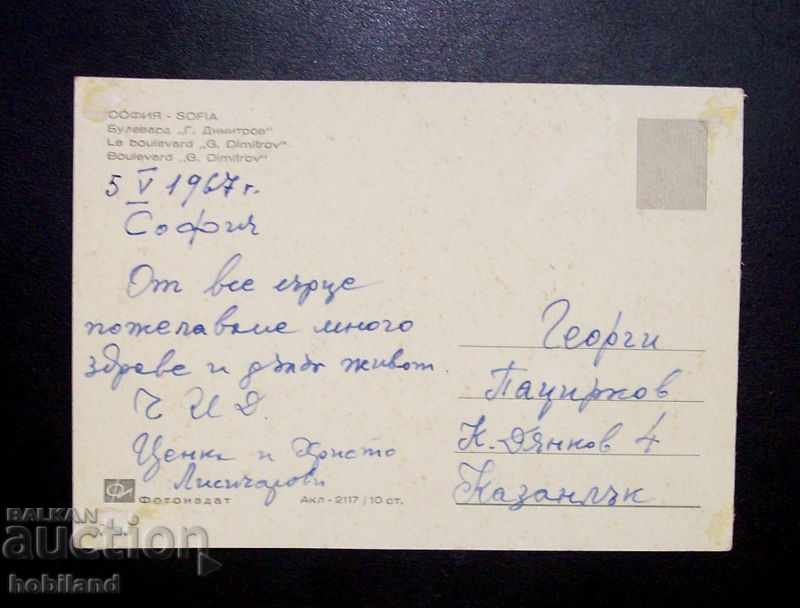 СОФИЯ - SOFIA
Булевард „Г. Димитров“
Le boulevard „G. Dimitrov“
Boulevard „G. Dimitrov“
5 V 1967 г.
София
От все сърце
пожелаваме много
здраве и дълъг живот.
Ч И Д.
Ценка и Христо
Лисичарови
Фотоиздат Акл - 2117 / 10 ст.
Георги
Пацирков
К. Дянков 4
Казанлък
BALKAN
auction
hobiland